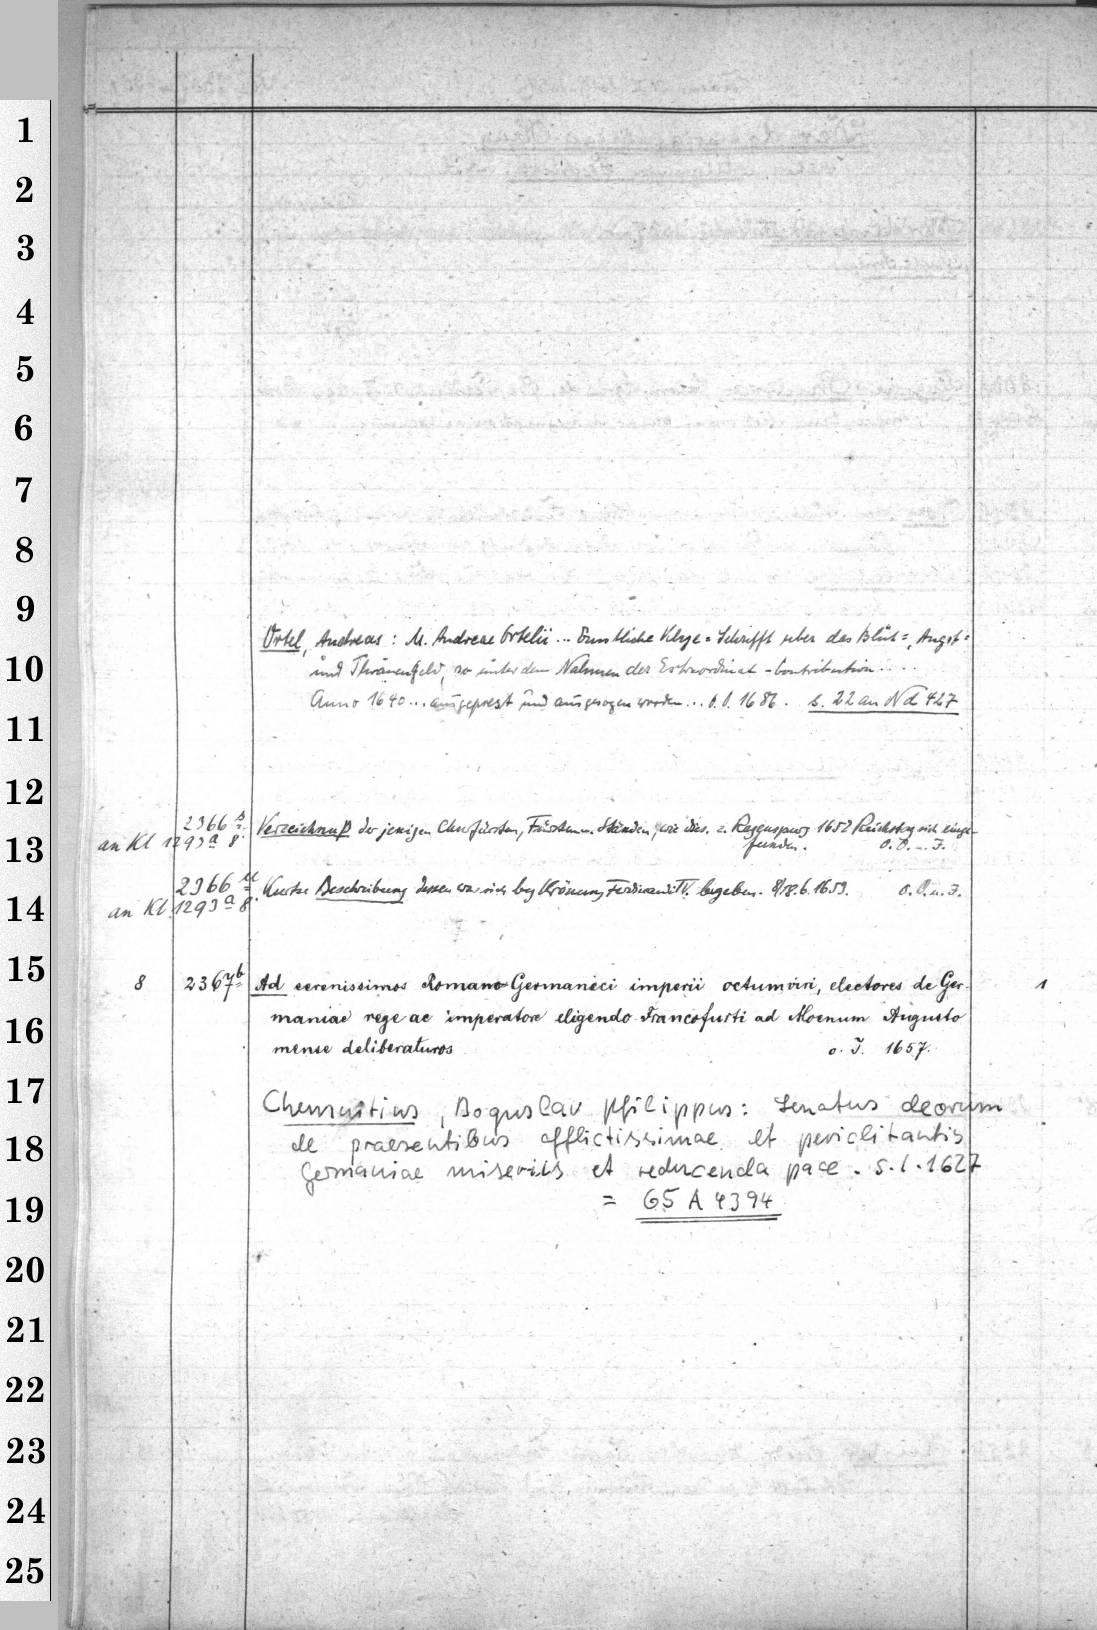 1
2
3
4
5
6
7
8
9
Örtel, Andreas: M. Andreae Ortelii ... Schrifft uber das Blůt=, Angst=
10
und Thränengeld, so unter dem Nahmen der Extraordinat-Contribution ....
Anno 1640 ... ausgeprest und ausgesogen worden ... o.O. 1686. b. 22 an Nd 427
11
12
2366 s Verzeichnuß der jenigen Churfürsten, Fürsten u. Ständen, wie dies. z. Regenspurg 1652 Reichstag sich einge-
13
an Kl 1293a 8. funden. o.O.u.J.
2366 u Kurtze Beschreibung dessen was sich bey Krönung Ferdinandi IV. begeben. 8/18.6.1653. o.O.u.J.
14
an Kl 1293a 8.
15
8 2367b Ad serenissimos Romano Germanici imperii octumviri, electores de Ger- 1
maniae rege ac imperatore eligendo Francofurti ad Moenum Augusto
16
mense deliberaturos o. J. 1657.
17
Chemnitius, Boguslav Philippus: Senatus deorum
18
de praesentibus afflictissimae et periclitantis
Germaniae miseriis et reducenda pace. s.l. 1627
19
= 65 A 4394
20
21
22
23
24
25